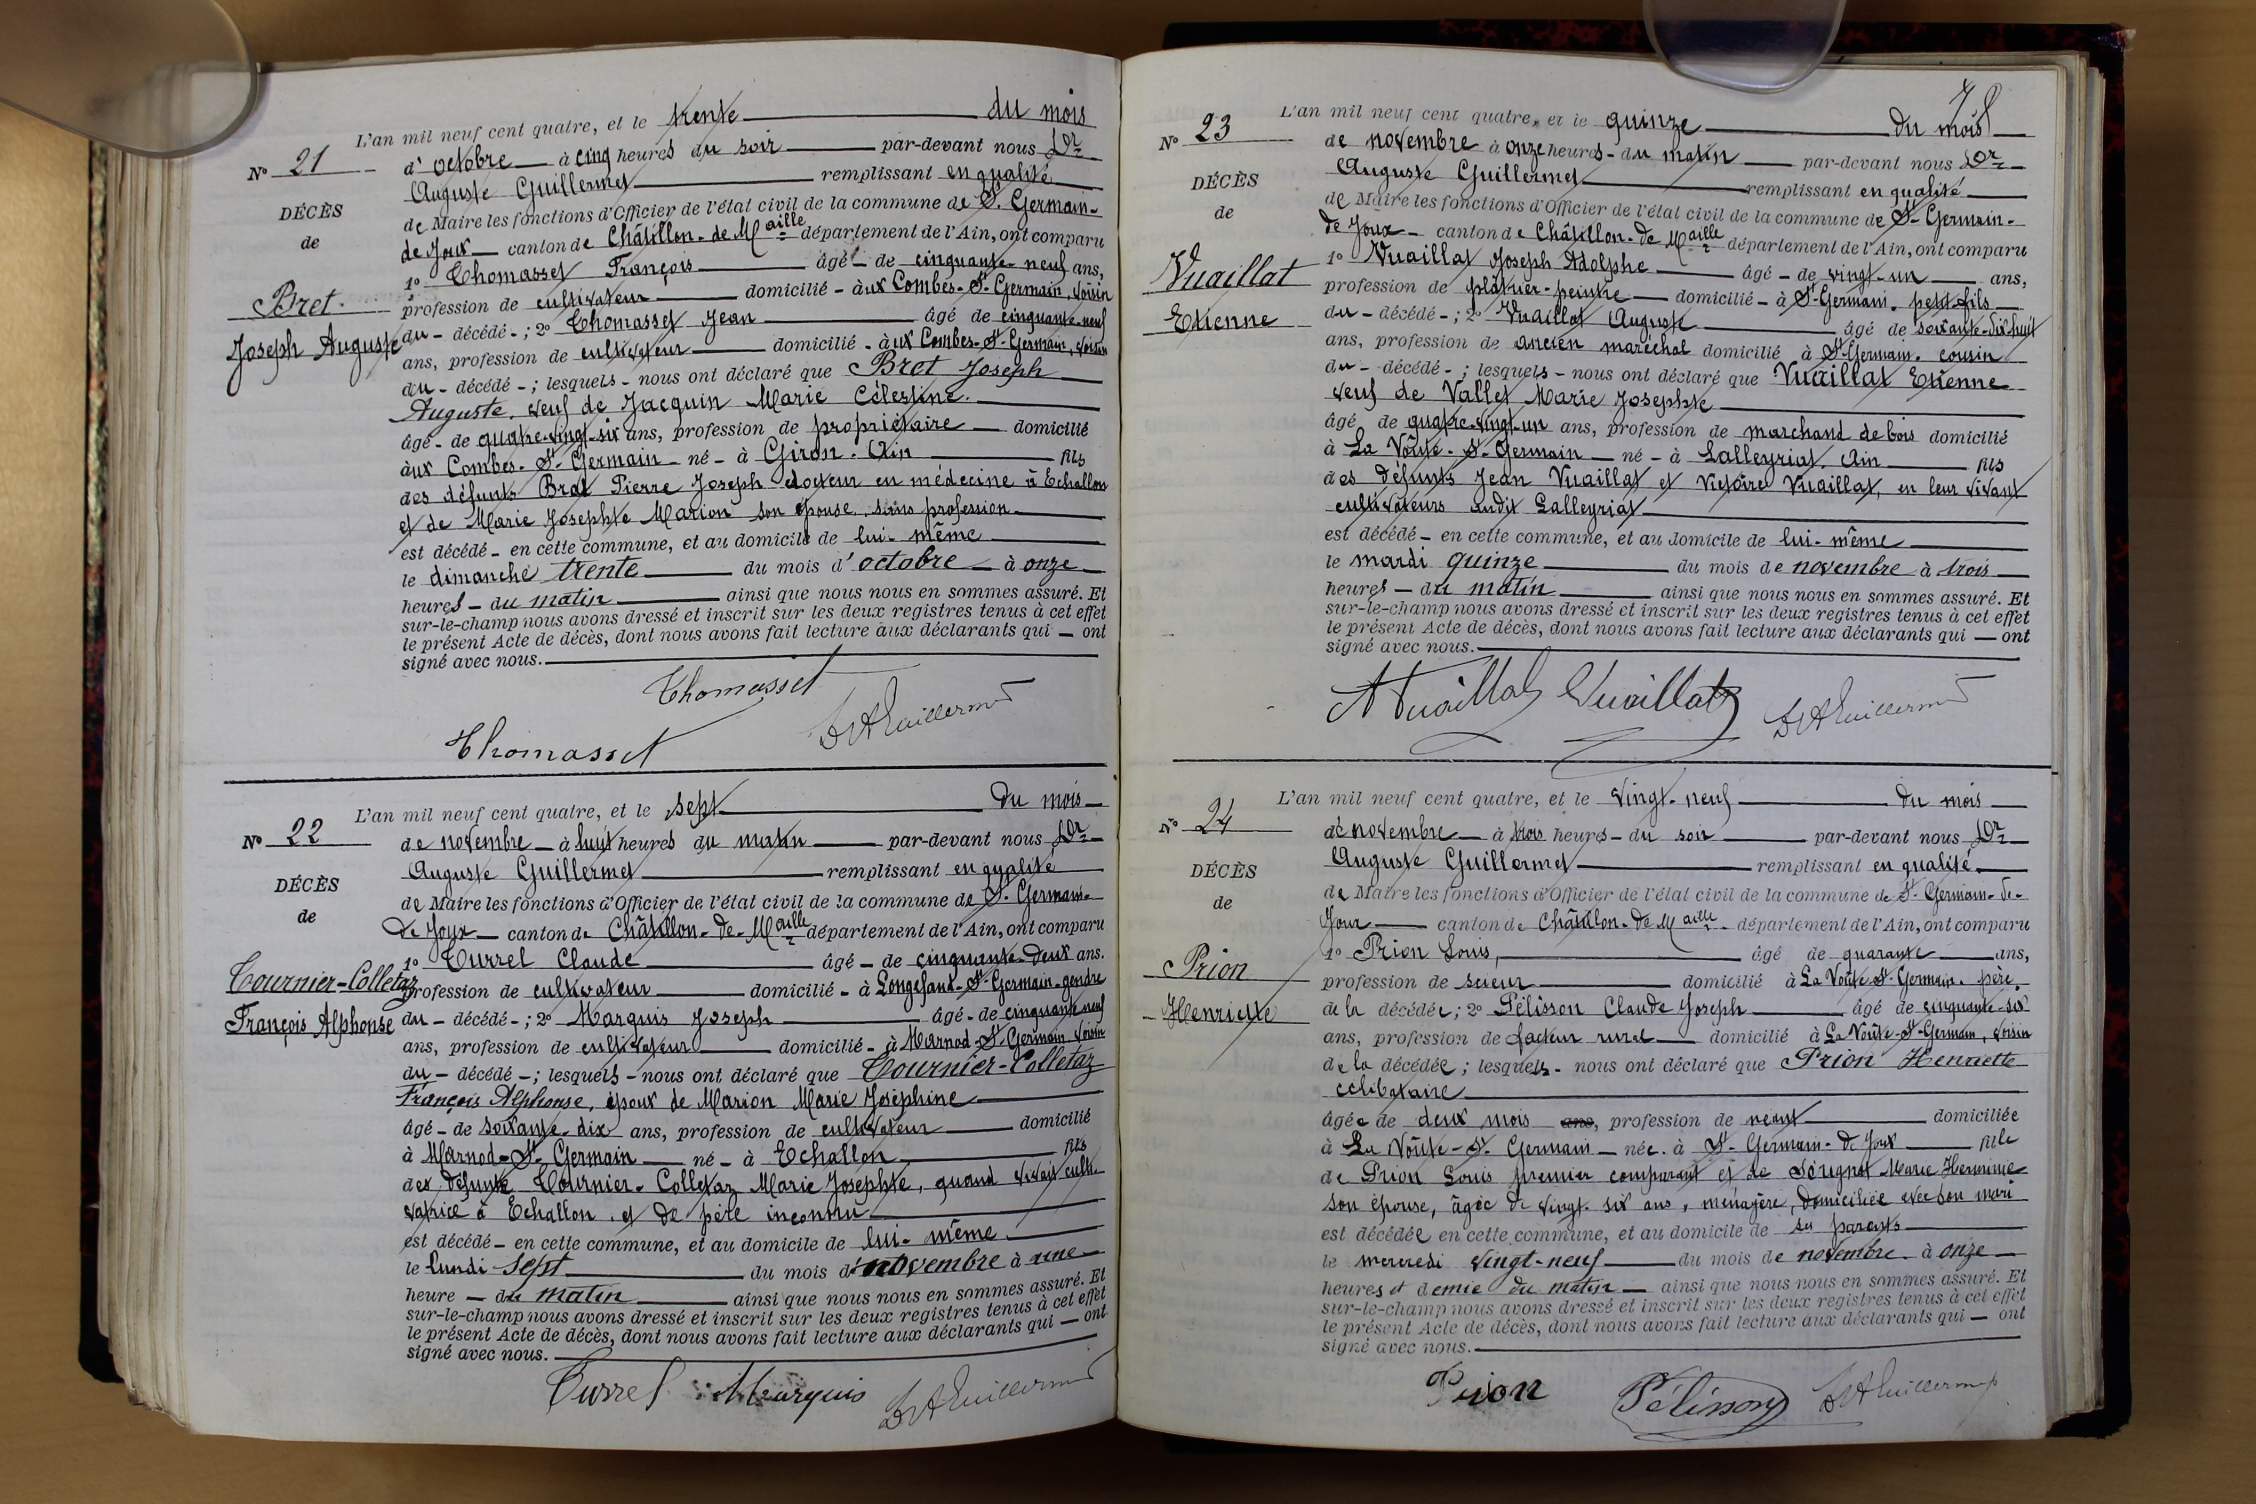 L'an mil neuf cent quatre, et le trente du mois
N° 21
d'octobre à cinq heures du soir par-devant nous Dr
Auguste Guillermet remplissant en qualité
DÉCÈS
de Maire les fonctions d'Officier de l'état civil de la commune de St. Germain-
de
de Joux canton de Châtillon-de-Maille département de l'Ain, ont comparu
1° Thomasset François âgé - de cinquante-neuf ans,
Bret
profession de cultivateur domicilié - aux Combes-St-Germain, voisin
Joseph Auguste
du - décédé - ; 2° Thomasset Jean âgé de cinquante-neuf
ans, profession de cultivateur domicilié - aux Combes-St-Germain, voisin
du - décédé - ; lesquels - nous ont déclaré que Bret Joseph
Auguste, veuf de Jacquin Marie Célestine.
âgé - de quatre-vingt-six ans, profession de propriétaire domicilié
aux Combes-St-Germain né - à Giron. Ain fils
des défunts Bret Pierre Joseph docteur en médecine à Echallon
et de Marie Josephte Marion son épouse, sans profession
est décédé - en cette commune, et au domicile de lui-même
le dimanche trente du mois d'octobre à onze
heures - du matin ainsi que nous nous en sommes assuré. Et
sur-le-champ nous avons dressé et inscrit sur les deux registres tenus à cet effet
le présent Acte de décès, dont nous avons fait lecture aux déclarants qui - ont
signé avec nous.
Thomasset
Thomasset
Dr A Guillermet
L'an mil neuf cent quatre, et le sept du mois
N° 22
de novembre à huit heures du matin par-devant nous Dr
Auguste Guillermet remplissant en qualité
DÉCÈS
de Maire les fonctions d'Officier de l'état civil de la commune de St. Germain-
de
de Joux canton de Châtillon-de-Maille département de l'Ain, ont comparu
1° Turrel Claude âgé - de cinquante-deux ans.
Tournier-Colletaz
profession de cultivateur domicilié - à Longefand-St-Germain-gendre
François Alphonse
du - décédé - ; 2° Marquis Joseph âgé - de cinquante neuf
ans, profession de cultivateur domicilié - à Marnod-St-Germain voisin
du - décédé - ; lesquels - nous ont déclaré que Tournier-Colletaz
François Alphonse, époux de Marion Marie Joséphine
âgé - de soixante-dix ans, profession de cultivateur domicilié
à Marnod-St-Germain né - à Echallon fils
des défunte Tournier-Colletaz Marie Josephte, quand vivait culti-
vatrice à Echallon, et de père inconnu
est décédé - en cette commune, et au domicile de lui-même
le lundi sept du mois de novembre à une
heure - du matin ainsi que nous nous en sommes assuré. Et
sur-le-champ nous avons dressé et inscrit sur les deux registres tenus à cet effet
le présent Acte de décès, dont nous avons fait lecture aux déclarants qui - ont
signé avec nous.
Turrel Marquis Dr A Guillermet
L'an mil neuf cent quatre, et le quinze du mois
N° 23
de novembre à onze heures - du matin par-devant nous Dr
Auguste Guillermet remplissant en qualité
DÉCÈS
de Maire les fonctions d'Officier de l'état civil de la commune de St-Germain-
de
de Joux - canton de Châtillon-de-Maille département de l'Ain, ont comparu
1° Vuaillat Joseph Adolphe âgé - de vingt-un ans,
Vuaillat
profession de plâtrier-peintre domicilié - à St-Germain. petit-fils
Etienne
du - décédé - ; 2° Vuaillat Auguste âgé de soixante-dix-huit
ans, profession de ancien maréchal domicilié à St-Germain. cousin
du - décédé - ; lesquels - nous ont déclaré que Vuaillat Etienne
veuf de Vallet Marie Josephte
âgé de quatre-vingt-un ans, profession de marchand de bois domicilié
à La Voûte-St-Germain né - à Lalleyriat. Ain fils
des défunts Jean Vuaillat et Victoire Vuaillat, en leur vivant
cultivateurs audit Lalleyriat
est décédé - en cette commune, et au domicile de lui-même
le mardi quinze du mois de novembre à trois
heures - du matin ainsi que nous nous en sommes assuré. Et
sur-le-champ nous avons dressé et inscrit sur les deux registres tenus à cet effet
le présent Acte de décès, dont nous avons fait lecture aux déclarants qui - ont
signé avec nous.
A Vuaillat Vuaillat Dr A Guillermet
L'an mil neuf cent quatre, et le vingt-neuf du mois
N° 24
de novembre à trois heures - du soir par-devant nous Dr
Auguste Guillermet remplissant en qualité
DÉCÈS
de Maire les fonctions d'Officier de l'état civil de la commune de St-Germain-de-
de
Joux canton de Châtillon-de-Maille département de l'Ain, ont comparu
1° Prion Louis, âgé de quarante ans,
Prion
profession de scieur domicilié à La Voûte-St-Germain. père.
Henriette
de la décédée ; 2° Pélisson Claude Joseph âgé de cinquante-six
ans, profession de facteur rural domicilié à La Voûte-St-Germain, voisin
de la décédée ; lesquels - nous ont déclaré que Prion Henriette
célibataire
âgée de deux mois ans, profession de néant domiciliée
à La Voûte-St-Germain née à St-Germain-de Joux fille
de Prion Louis premier comparant et de Marie Herminie
son épouse, âgée de vingt-six ans, ménagère, domiciliée avec son mari
est décédée en cette commune, et au domicile de ses parents
le mercredi vingt-neuf du mois de novembre à onze
heures et demie du matin ainsi que nous nous en sommes assuré. Et
sur-le-champ nous avons dressé et inscrit sur les deux registres tenus à cet effet
le présent Acte de décès, dont nous avons fait lecture aux déclarants qui - ont
signé avec nous.
Prion Pélisson Dr A Guillermet